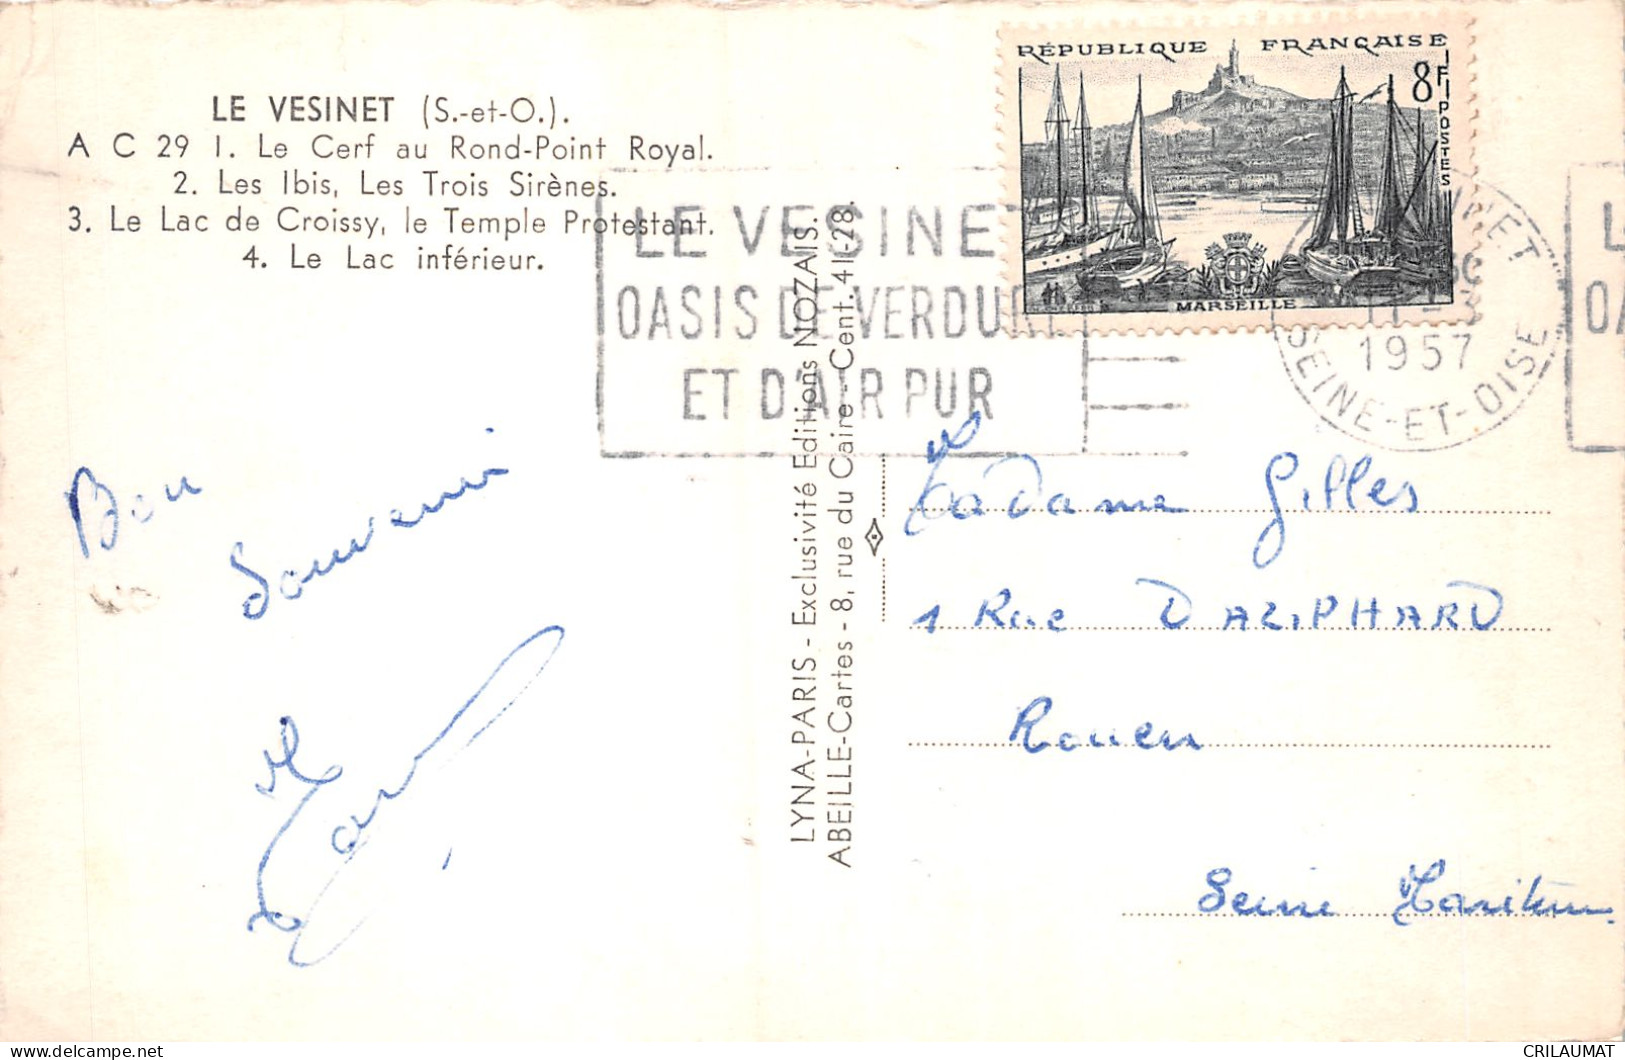 LE VESINET (S.-et-O.).
A C 29 1. Le Cerf au Rond-Point Royal.
2. Les Ibis, Les Trois Sirènes.
3. Le Lac de Croissy, le Temple Protestant.
4. Le Lac inférieur.
RÉPUBLIQUE FRANÇAISE
8F
POSTES
MARSEILLE
LE VESINET
OASIS DE VERDURE
ET D'AIR PUR
1957
SEINE-ET-OISE
L
OA
LYNA-PARIS - Exclusivité Editions NOZAIS.
ABEILLE-Cartes - 8, rue du Caire - Cent. 41-28.
Bon
Souvenir
Madame Gilles
1 Rue DAZIPHARD
Rouen
Seine Maritime
CRILAUMAT